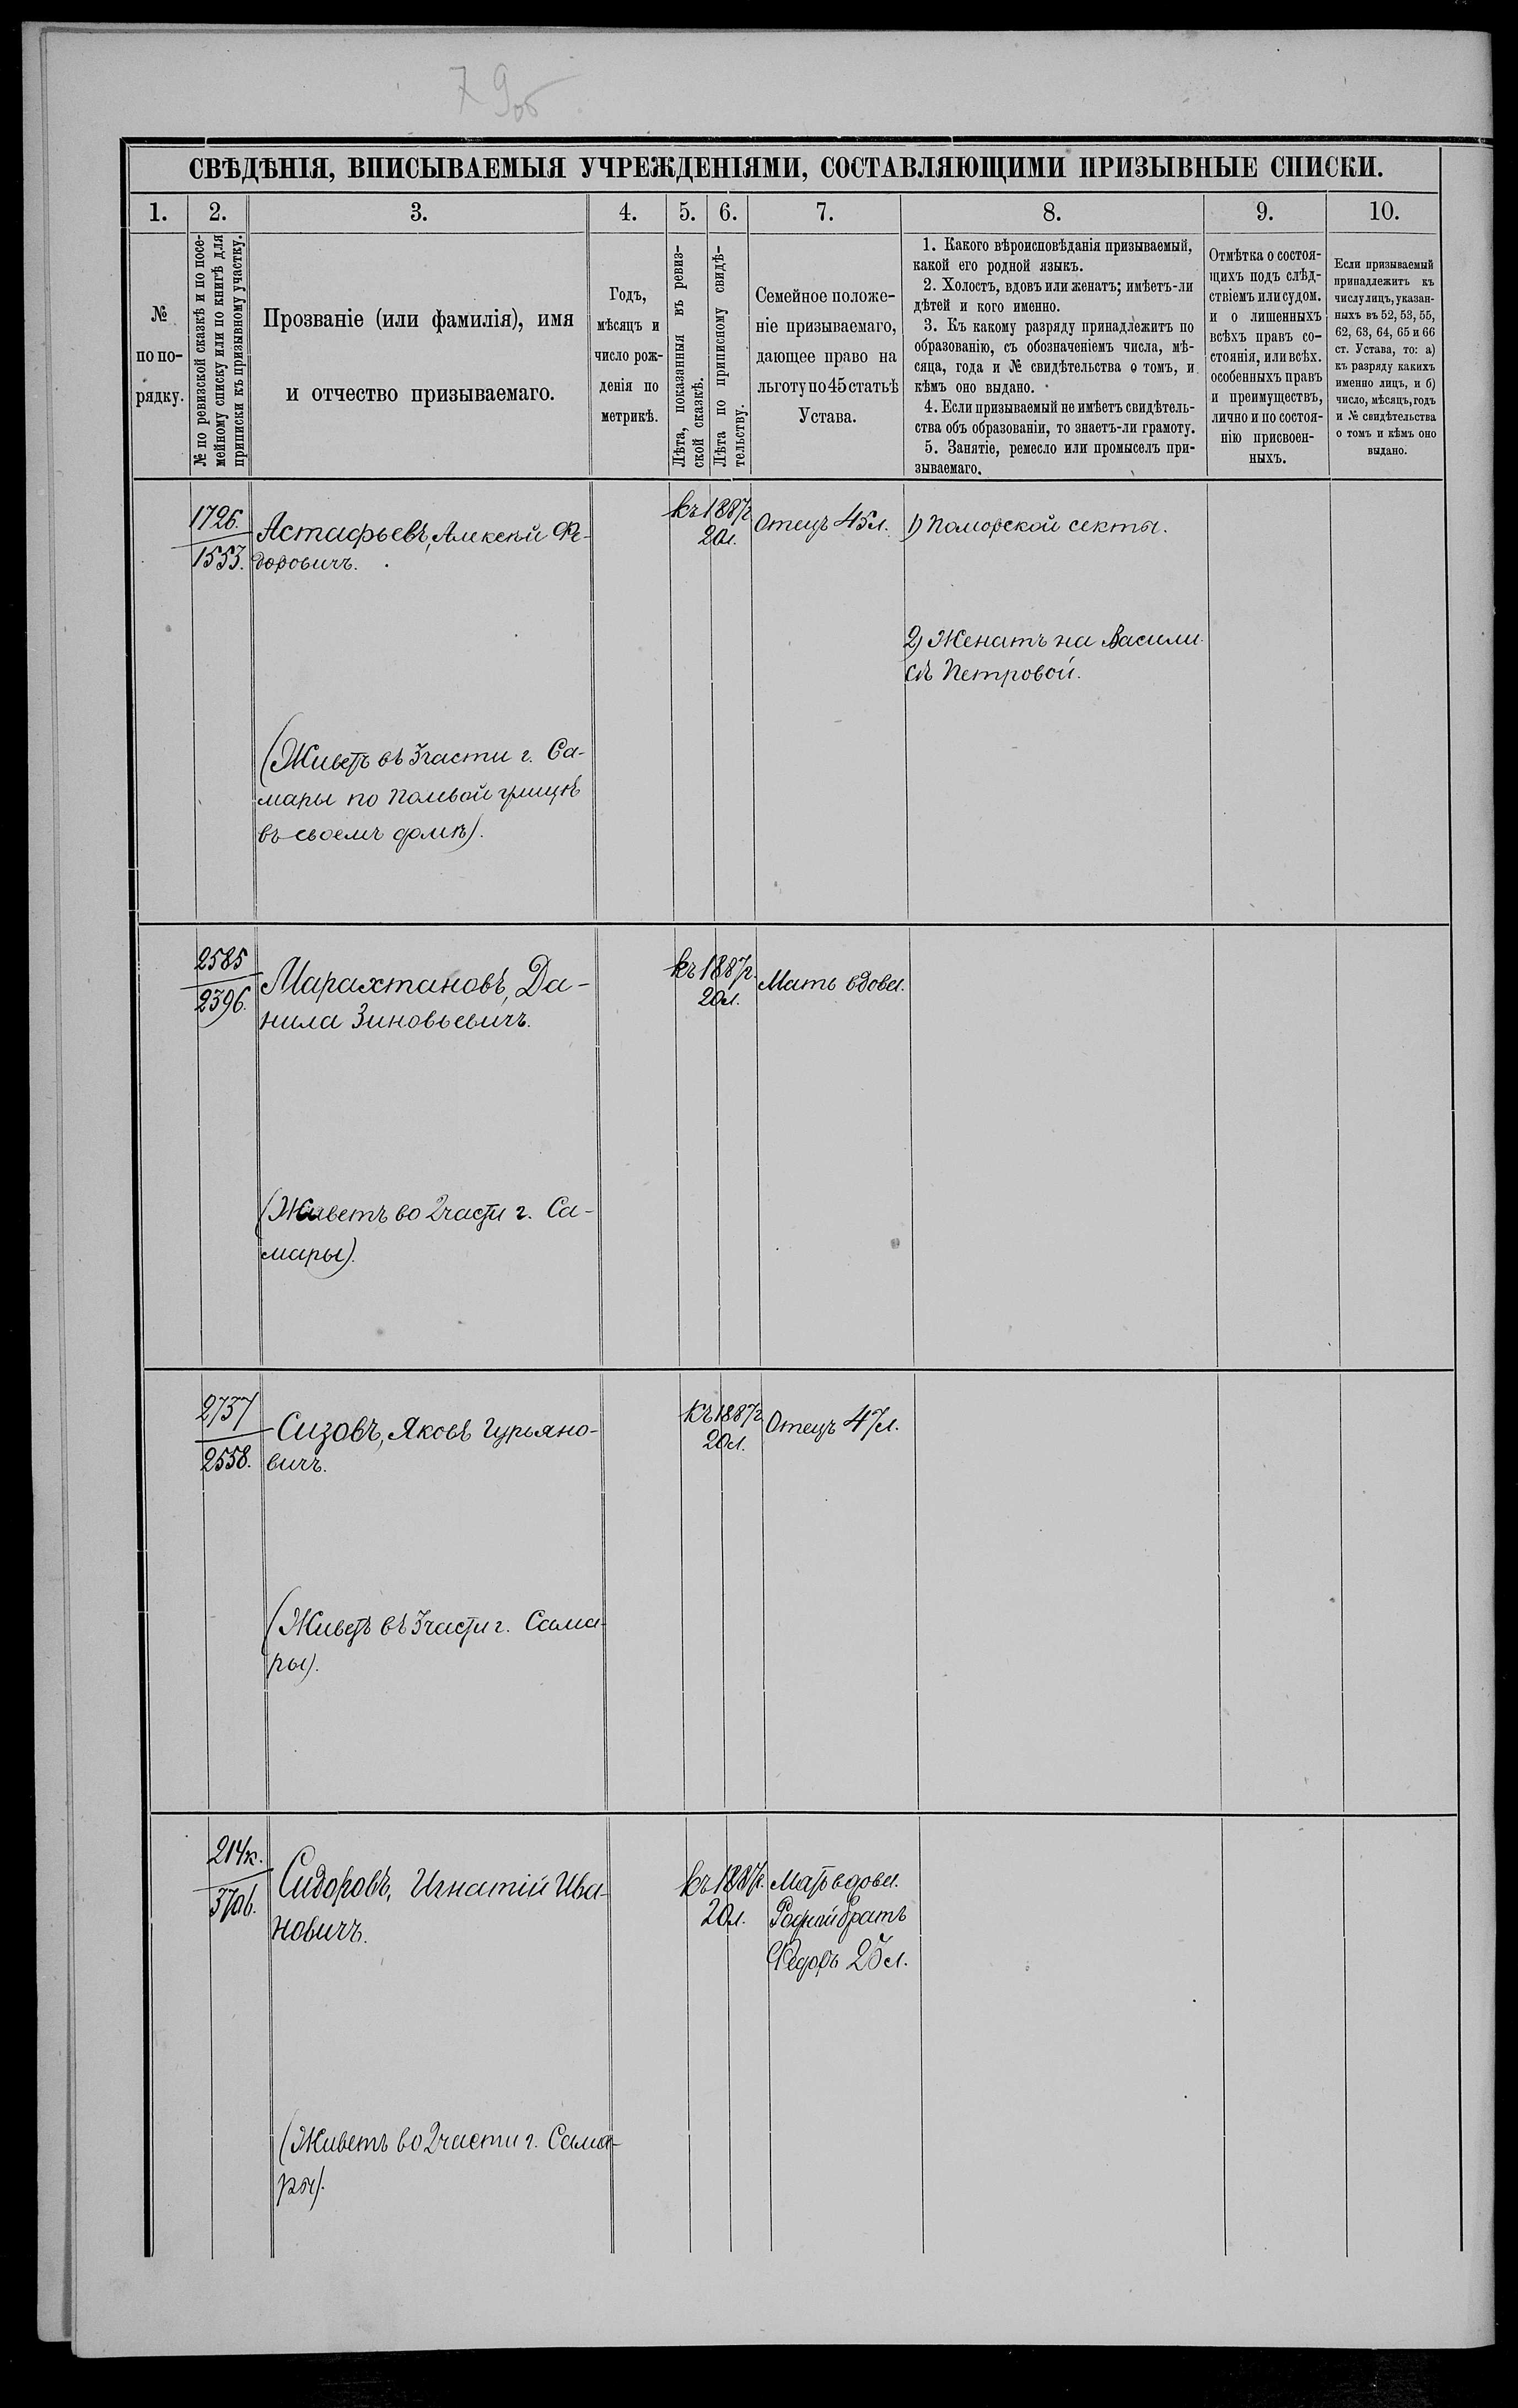 79об
СВѢДѢНІЯ, ВПИСЫВАЕМЫЯ УЧРЕЖДЕНІЯМИ, СОСТАВЛЯЮЩИМИ ПРИЗЫВНЫЕ СПИСКИ.
1. 2. 3. 4. 5. 6. 7. 8. 9. 10.
№
по по-
рядку.
№ по ревизской сказкѣ и по посе-
мейному списку или по книгѣ для
приписки къ призывному участку.
Прозваніе (или фамилія), имя
и отчество призываемаго.
Годъ,
мѣсяцъ и
число рож-
денія по
метрикѣ.
Лѣта, показанныя въ ревиз-
ской сказкѣ.
Лѣта по приписному свидѣ-
тельству.
Семейное положе-
ніе призываемаго,
дающее право на
льготу по 45 статьѣ
Устава.
1. Какого вѣроисповѣданія призываемый,
какой его родной языкъ.
2. Холостъ, вдовъ или женатъ; имѣетъ-ли
дѣтей и кого именно.
3. Къ какому разряду принадлежитъ по
образованію, съ обозначеніемъ числа, мѣ-
сяца, года и № свидѣтельства о томъ, и
кѣмъ оно выдано.
4. Если призываемый не имѣетъ свидѣтель-
ства объ образованіи, то знаетъ-ли грамоту.
5. Занятіе, ремесло или промыселъ при-
зываемаго.
Отмѣтка о состоя-
щихъ подъ слѣд-
ствіемъ или судом.
и о лишенныхъ
всѣхъ правъ со-
стоянія, или всѣх.
особенныхъ правъ
и преимуществъ,
лично и по состоя-
нію присвоен-
ныхъ.
Если призываемый
принадлежитъ къ
числу лицъ, указан-
ныхъ въ 52, 53, 55,
62, 63, 64, 65 и 66
ст. Устава, то: а)
къ разряду какихъ
именно лицъ, и б)
число, мѣсяцъ, годъ
и № свидѣтельства
о томъ и кѣмъ оно
выдано.
1726.
1553.
Астафьевъ, Алексѣй Фе-
доровичъ.
къ 1887г
20л.
Отецъ 45л.
1) Поморской секты.
2) Женатъ на Васили-
сѣ Петровой.
(Живетъ въ 3 части г. Са-
мары по Полевой улицѣ
въ своемъ домѣ).
2585
2396.
Марахтановъ, Да-
нила Зиновьевичъ.
къ 1887г.
20л.
Мать вдова.
(Живетъ во 2 части г. Са-
мары).
2737
2558.
Сизовъ, Яковъ Гурьяно-
вичъ.
къ 1887г
20л.
Отецъ 47л.
(Живетъ въ 3 части г. Сама-
ры).
214к.
3706.
Сидоровъ, Игнатій Ива-
новичъ.
къ 1887г.
20л.
Мать вдова.
Родной братъ
Федоръ 25л.
(Живетъ во 2 части г. Сама-
ры).